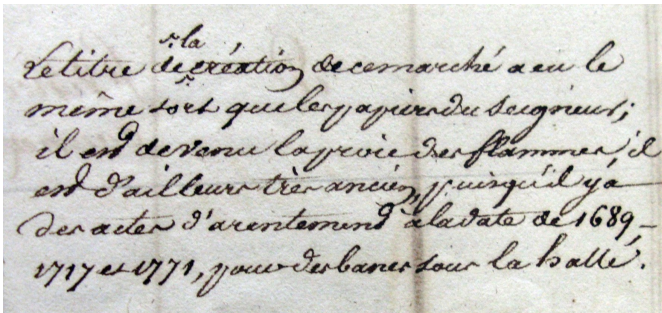 Le titre de la création de ce marché a eu le
même sort que les papiers du Seigneur;
il est devenu la proie des flammes il
est d'ailleurs très ancien, puisqu'il y a
des actes d'arentement à la date de 1689,
1717 et 1771, pour des bancs sous la halle.